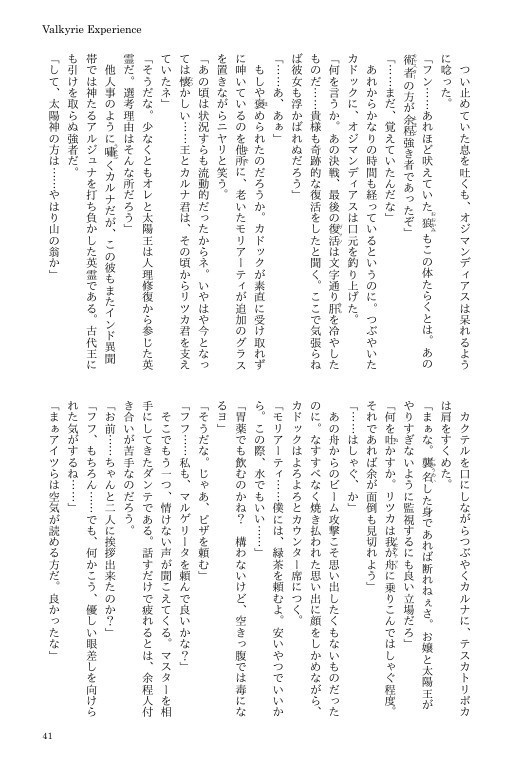 Valkyrie Experience
つい止めていた息を吐くも、オジマンディアスは呆れるよう
に唸った。
「フン……あれほど吠えていた。狼もこの体たらくとは。あの
術者の方が余程強き者であったぞ」
「……まだ、覚えていたんだな」
あれからかなりの時間も経っているというのに。つぶやいた
カドックに、オジマンディアスは口元を釣り上げた。
「何を言うか。あの決戦、最後の復活は文字通り肝を冷やした
ものだ……貴様も奇跡的な復活をしたと聞く。ここで気張らね
ば彼女も浮かばれぬだろう」
「……あ、あぁ」
もしや褒められたのだろうか。カドックが素直に受け取れず
に呻いているのを他所に、老いたモリアーティが追加のグラス
を置きながらニヤリと笑う。
「あの頃は状況すらも流動的だったからネ。いやはや今となっ
ては懐かしい……王とカルナ君は、その頃からリツカ君を支え
ていたネ」
「そうだな。少なくともオレと太陽王は人理修復から参じた英
霊だ。選考理由はそんな所だろう」
他人事のように囁くカルナだが、この彼もまたインド異聞
帯では神たるアルジュナを打ち負かした英霊である。古代王に
も引けを取らぬ強者だ。
「して、太陽神の方は……やはり山の翁か」
カクテルを口にしながらつぶやくカルナに、テスカトリポカ
は肩をすくめた。
「まぁな。襲名した身であれば断れねぇさ。お嬢と太陽王が
やりすぎないように監視するにも良い立場だろ」
「何を吐かすか。リツカは我が舟に乗りこんではしゃぐ程度。
それであれば余が面倒も見切れよう」
「……はしゃぐ、か」
あの舟からのビーム攻撃こそ思い出したくもないものだった
のに。なすすべなく焼き払われた思い出に顔をしかめながら、
カドックはよろよろとカウンター席につく。
「モリアーティ……僕には、緑茶を頼むよ。安いやつでいいか
ら。この際、水でもいい……」
「胃薬でも飲むのかね？　構わないけど、空きっ腹では毒にな
るヨ」
「そうだな。じゃあ、ピザを頼む」
「フフ……私も、マルゲリータを頼んで良いかな？」
そこでもう一つ、情けない声が聞こえてくる。マスターを相
手にしてきたダンテである。話すだけで疲れるとは、余程人付
き合いが苦手なのだろう。
「お前……ちゃんと二人に挨拶出来たのか？」
「フフ、もちろん……でも、何かこう、優しい眼差しを向けら
れた気がするね……」
「まぁアイツらは空気が読める方だ。良かったな」
41